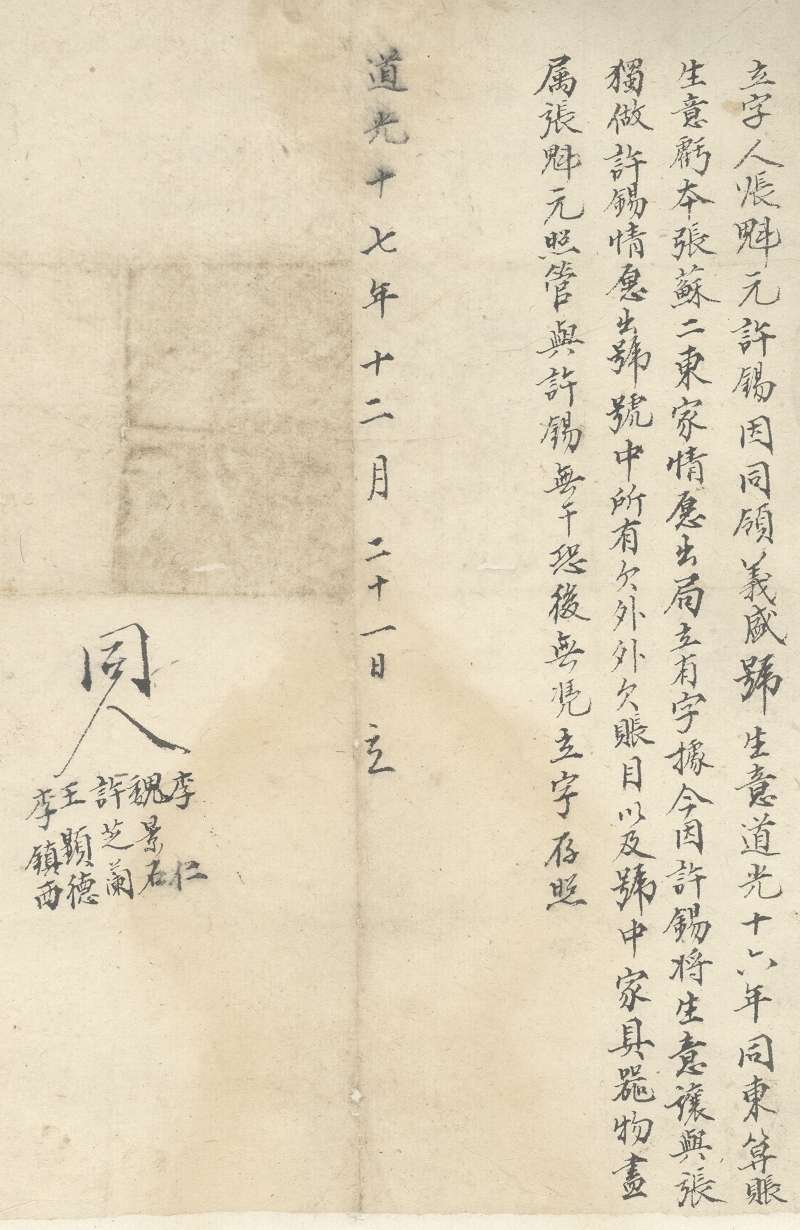 立字人張魁元許錫因同領義盛號生意道光十六年同東算賬
生意虧本張蘇二東家情愿出局立有字據今因許錫将生意讓與張
獨做許錫情愿出號號中所有欠外外欠賬目以及號中家具噐物盡
属張魁元照管與許錫無干恐後無凭立字存照
道光十七年十二月二十一日 立
同人
李仁
魏景石
許芝蘭
王顯德
李鎮西